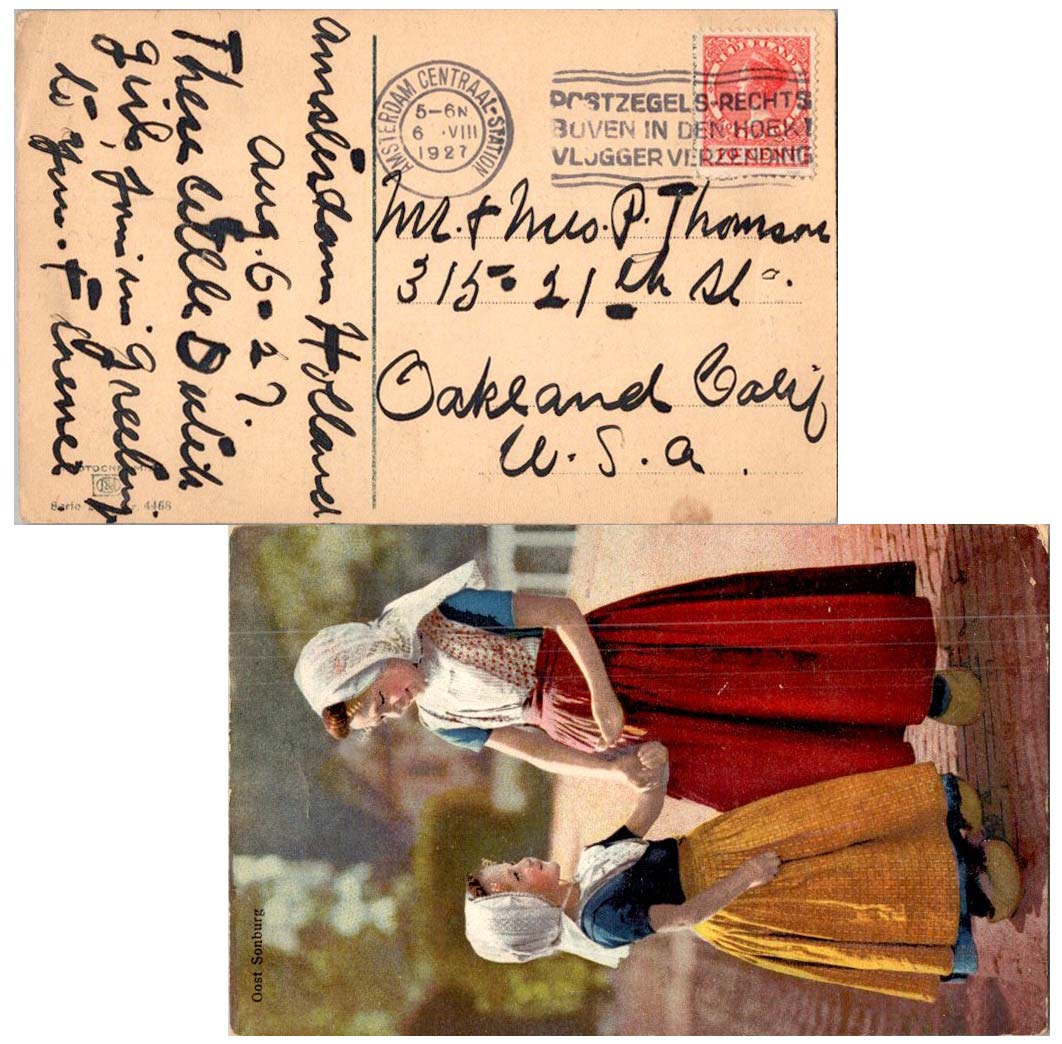 Amsterdam Holland
Aug. 6 - 27.
These little Dutch
girls, join in greeting
to you. &
AMSTERDAM CENTRAAL-STATION
5-6N
6 VIII
1927
POSTZEGELS-RECHTS
BOVEN IN DEN HOEK!
VLUGGER VERZENDING
NEDERLAND
Mr. & Mrs. P. Thomson
315 - 21 th St.
Oakland Calif
U. S. A.
Serie
4468
Oost Sonburg